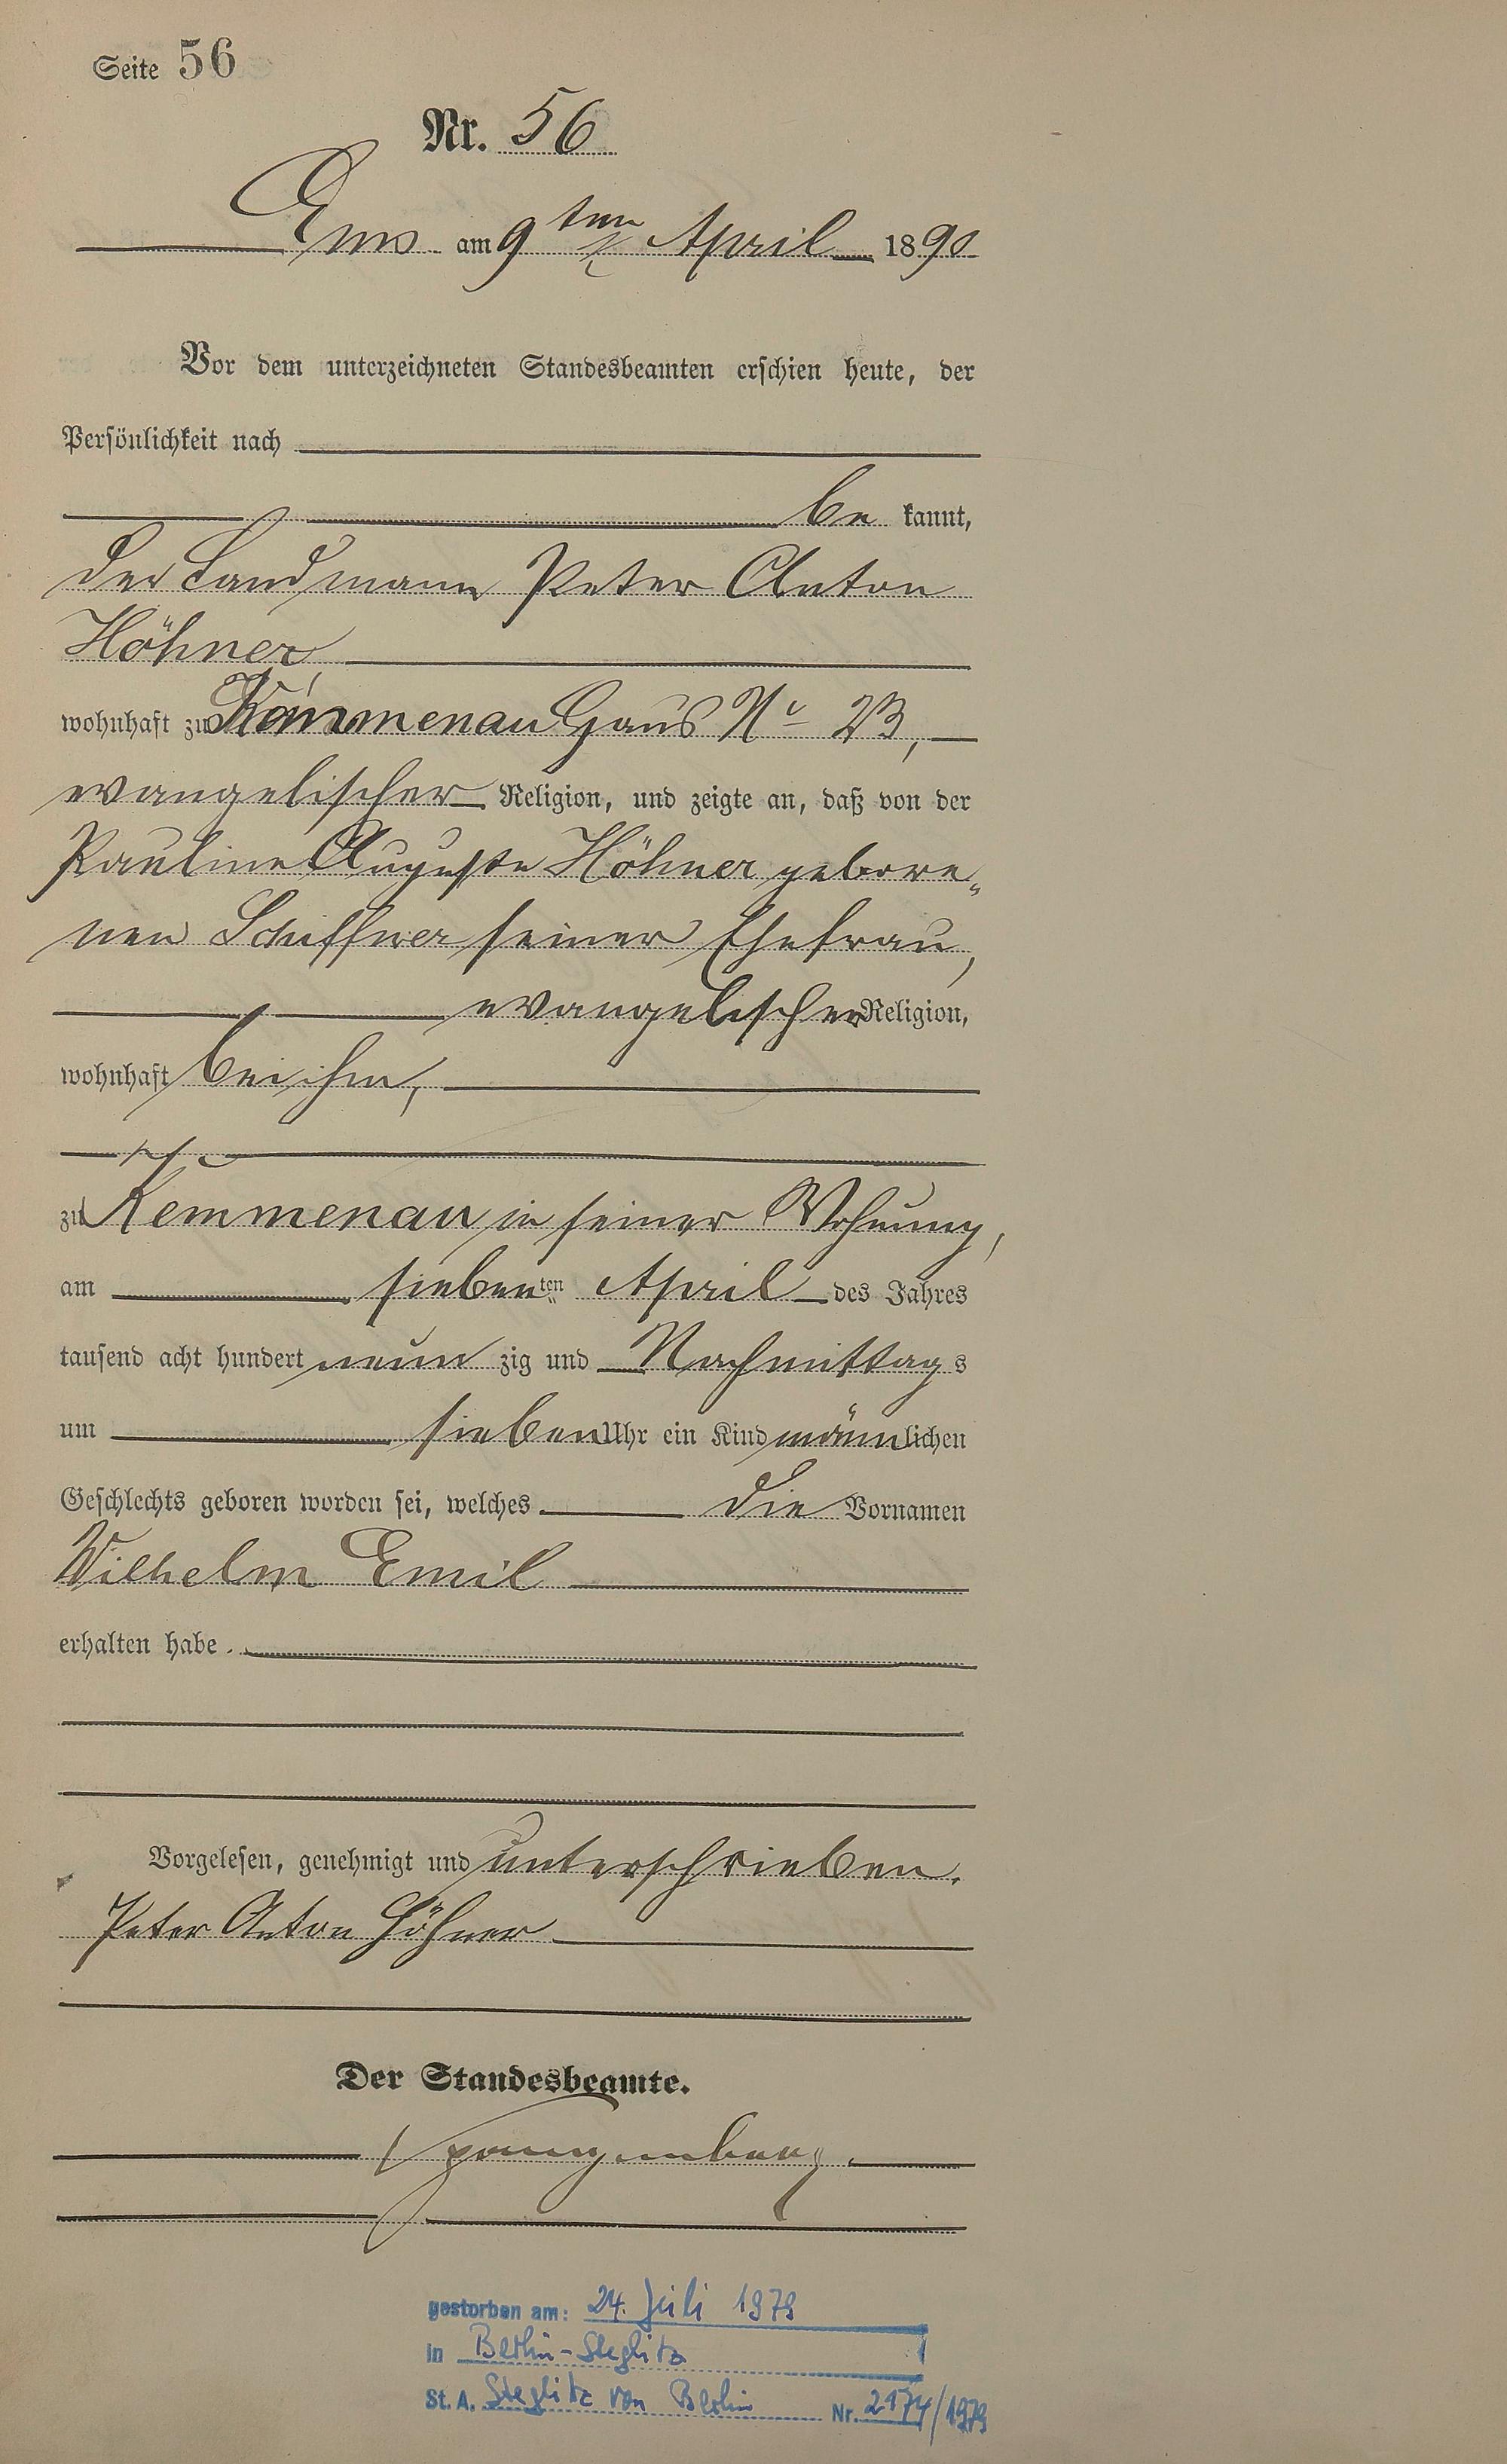 Seite 56
Nr. 56
Ems am 9ten April 1890
Vor dem unterzeichneten Standesbeamten erschien heute, der
Persönlichkeit nach
be kannt,
der Landmann Peter Anton
Höhner,
wohnhaft zu Kemmenau Haus No 23,
evangelischer Religion, und zeigte an, daß von der
Pauline Auguste Höhner gebore„
nen Schiffner seiner Ehefrau,
evangelischer Religion,
wohnhaft bei ihm,
zu Kemmenau in seiner Wohnung,
am siebenten April des Jahres
tausend acht hundert neun zig und Nachmittags
um sieben Uhr ein Kind männlichen
Geschlechts geboren worden sei, welches die Vornamen
Wilhelm Emil
erhalten habe.
Vorgelesen, genehmigt und unterschrieben.
Peter Anton Höhner
Der Standesbeamte.
Spangenberg.
gestorben am: 24. Juli 1979
in Berlin-Steglitz
St. A. Steglitz von Berlin Nr. 2174/1979